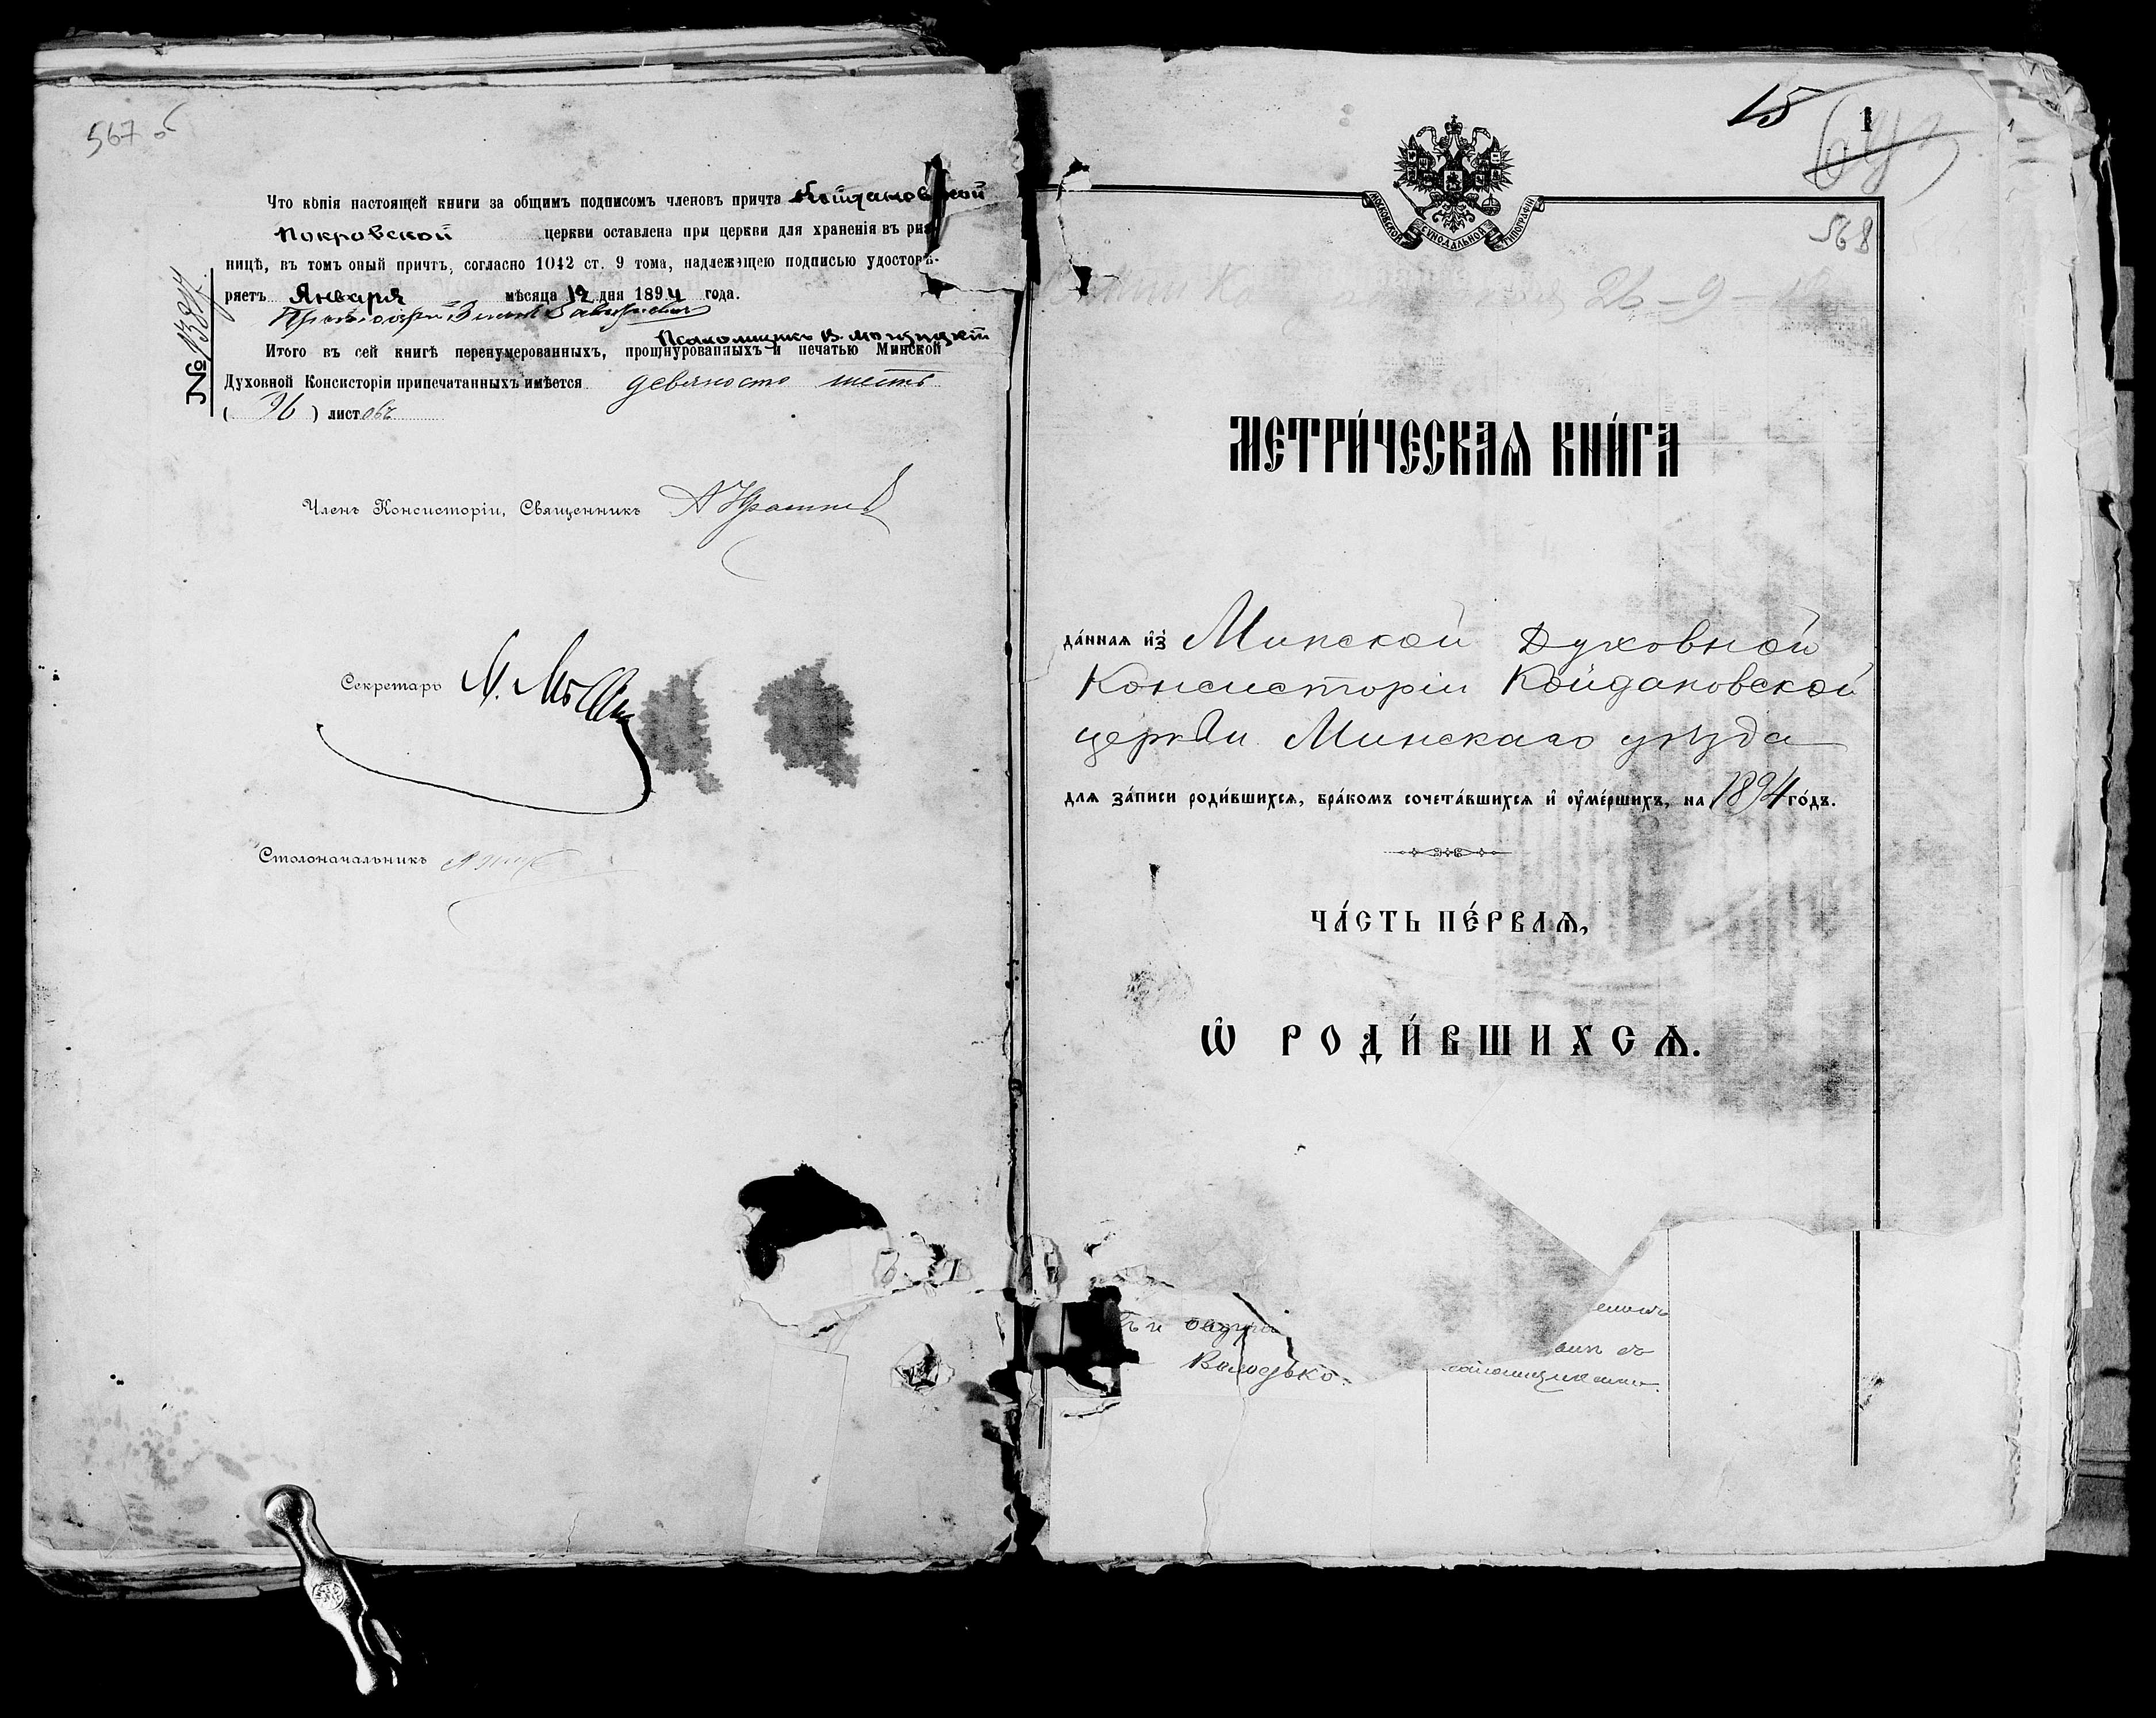 567 об
Что копія настоящей книги за общимъ подписомъ членовъ причта Койдановской
Покровской церкви оставлена при церкви для храненія въ риз-
ницѣ, въ томъ оный причтъ, согласно 1042 ст. 9 тома, надлежащею подписью удостовѣ-
ряетъ Января мѣсяца 12 дня 1894 года.
Псаломщикъ В.
Итого въ сей книгѣ перенумерованныхъ, прошнурованныхъ и печатью Минской
Духовной Консисторіи припечатанныхъ имѣется девяносто шесть
( 96 ) листовъ
№
Членъ Консисторіи, Священникъ
Секретарь
Столоначальникъ
15
1
568
МОСКОВСКОЙ СѴНОДАЛЬНОЙ ТИПОГРАФІИ
МЕТРИ́ЧЕСКАѦ КНИ́ГА
да́ннаѧ и҆з̾ Минской Духовной
Консисторіи Койдановской
церкви Минскаго уѣзда
для за́писи роди́вшихсѧ, бра́комъ сочета́вшихсѧ и҆ ᲂу҆ме́ршихъ, на 1894 го́дъ.
ЧА́СТЬ ПЕ́РВАѦ,
Ѡ҆ РОДИ́ВШИХСѦ.
Володько.